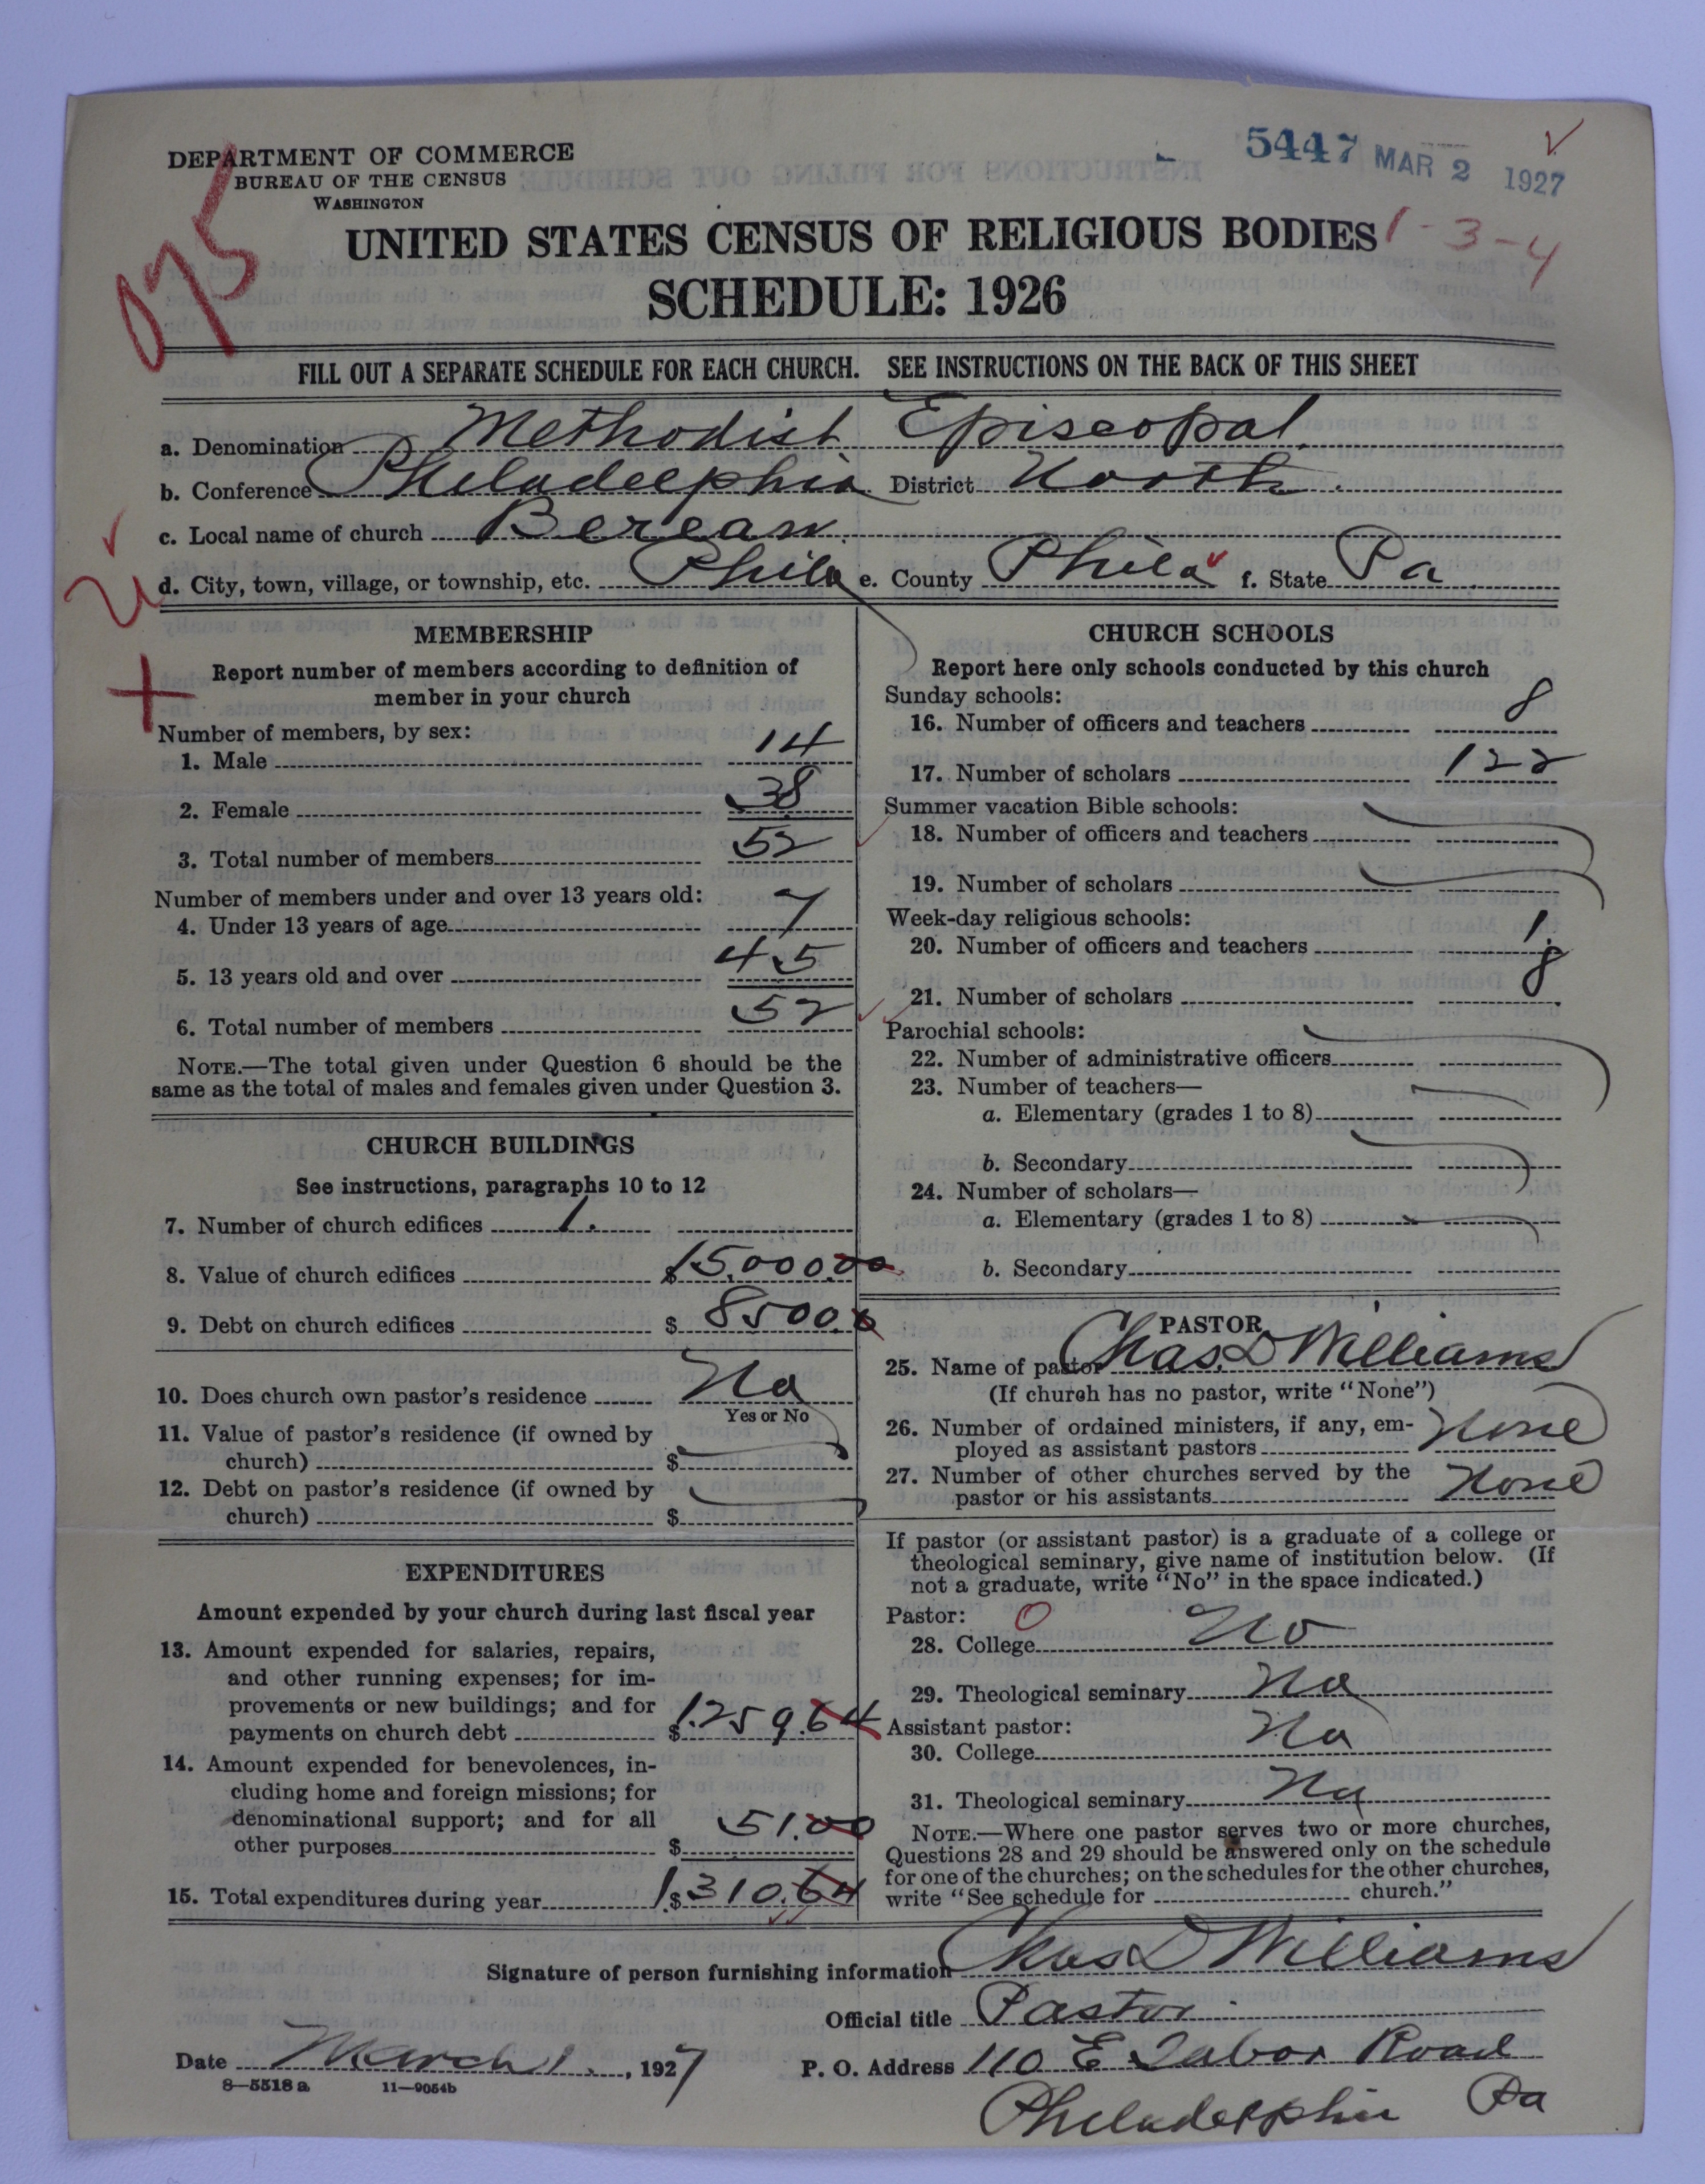 5447 MAR 2 1927
DEPARTMENT OF COMMERCE
BUREAU OF THE CENSUS
WASHINGTON
075
UNITED STATES CENSUS OF RELIGIOUS BODIES 1-3-4
SCHEDULE: 1926
FILL OUT A SEPARATE SCHEDULE FOR EACH CHURCH. SEE INSTRUCTIONS ON THE BACK OF THIS SHEET
a. Denomination Methodist Episcopal.
b. Conference Philadelphia District North.
c. Local name of church Berean.
d. City, town, village, or township, etc. Phila e. County Phila f. State Pa.
MEMBERSHIP
Report number of members according to definition of
member in your church
Number of members, by sex:
1. Male 14
2. Female 38
3. Total number of members 52
Number of members under and over 13 years old:
4. Under 13 years of age 7
5. 13 years old and over 45
6. Total number of members 52
NOTE.—The total given under Question 6 should be the
same as the total of males and females given under Question 3.
CHURCH BUILDINGS
See instructions, paragraphs 10 to 12
7. Number of church edifices 1.
8. Value of church edifices $15,000.00
9. Debt on church edifices $ 8500.0
10. Does church own pastor's residence No
Yes or No
11. Value of pastor's residence (if owned by
church) $
12. Debt on pastor's residence (if owned by
church) $
EXPENDITURES
Amount expended by your church during last fiscal year
13. Amount expended for salaries, repairs,
and other running expenses; for im-
provements or new buildings; and for
payments on church debt $1.259.64
14. Amount expended for benevolences, in-
cluding home and foreign missions; for
denominational support; and for all
other purposes $ 51.00
15. Total expenditures during year 1.$310.64
CHURCH SCHOOLS
Report here only schools conducted by this church
Sunday schools:
16. Number of officers and teachers 8
17. Number of scholars 122
Summer vacation Bible schools:
18. Number of officers and teachers
19. Number of scholars
Week-day religious schools:
20. Number of officers and teachers 1.
21. Number of scholars 8
Parochial schools:
22. Number of administrative officers
23. Number of teachers—
a. Elementary (grades 1 to 8)
b. Secondary
24. Number of scholars—
a. Elementary (grades 1 to 8)
b. Secondary
PASTOR
25. Name of pastor Chas. D Williams
(If church has no pastor, write "None")
26. Number of ordained ministers, if any, em-
ployed as assistant pastors None
27. Number of other churches served by the
pastor or his assistants None
If pastor (or assistant pastor) is a graduate of a college or
theological seminary, give name of institution below. (If
not a graduate, write "No" in the space indicated.)
Pastor: 0
28. College No
29. Theological seminary No
Assistant pastor:
30. College No
31. Theological seminary No
NOTE.—Where one pastor serves two or more churches,
Questions 28 and 29 should be answered only on the schedule
for one of the churches; on the schedules for the other churches,
write "See schedule for church."
Signature of person furnishing information Chas D Williams
Official title Pastor
Date March 1., 1927 P. O. Address 110 E Tabor Road
8—5518 a 11—9054b
Philadelphia Pa